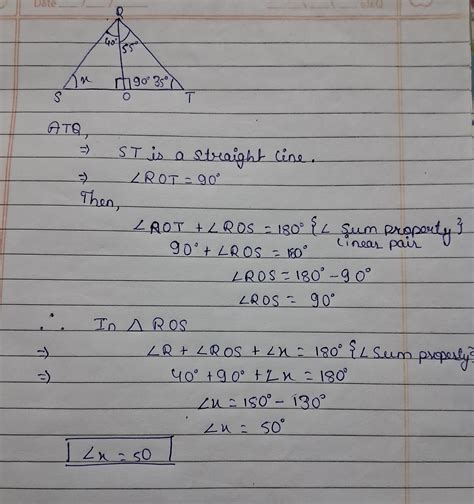 Date
R
40° 55°
x 90° 35°
S O T
ATQ,
⇒ ST is a straight line.
⇒ ∠ROT = 90°
Then,
∠ROT + ∠ROS = 180° {∠ Sum property}
linear pair
90° + ∠ROS = 180°
∠ROS = 180° - 90°
∠ROS = 90°
∴ In △ ROS
⇒ ∠R + ∠ROS + ∠x = 180° {∠ Sum property}
⇒ 40° + 90° + ∠x = 180°
∠x = 180° - 130°
∠x = 50°
∠x = 50